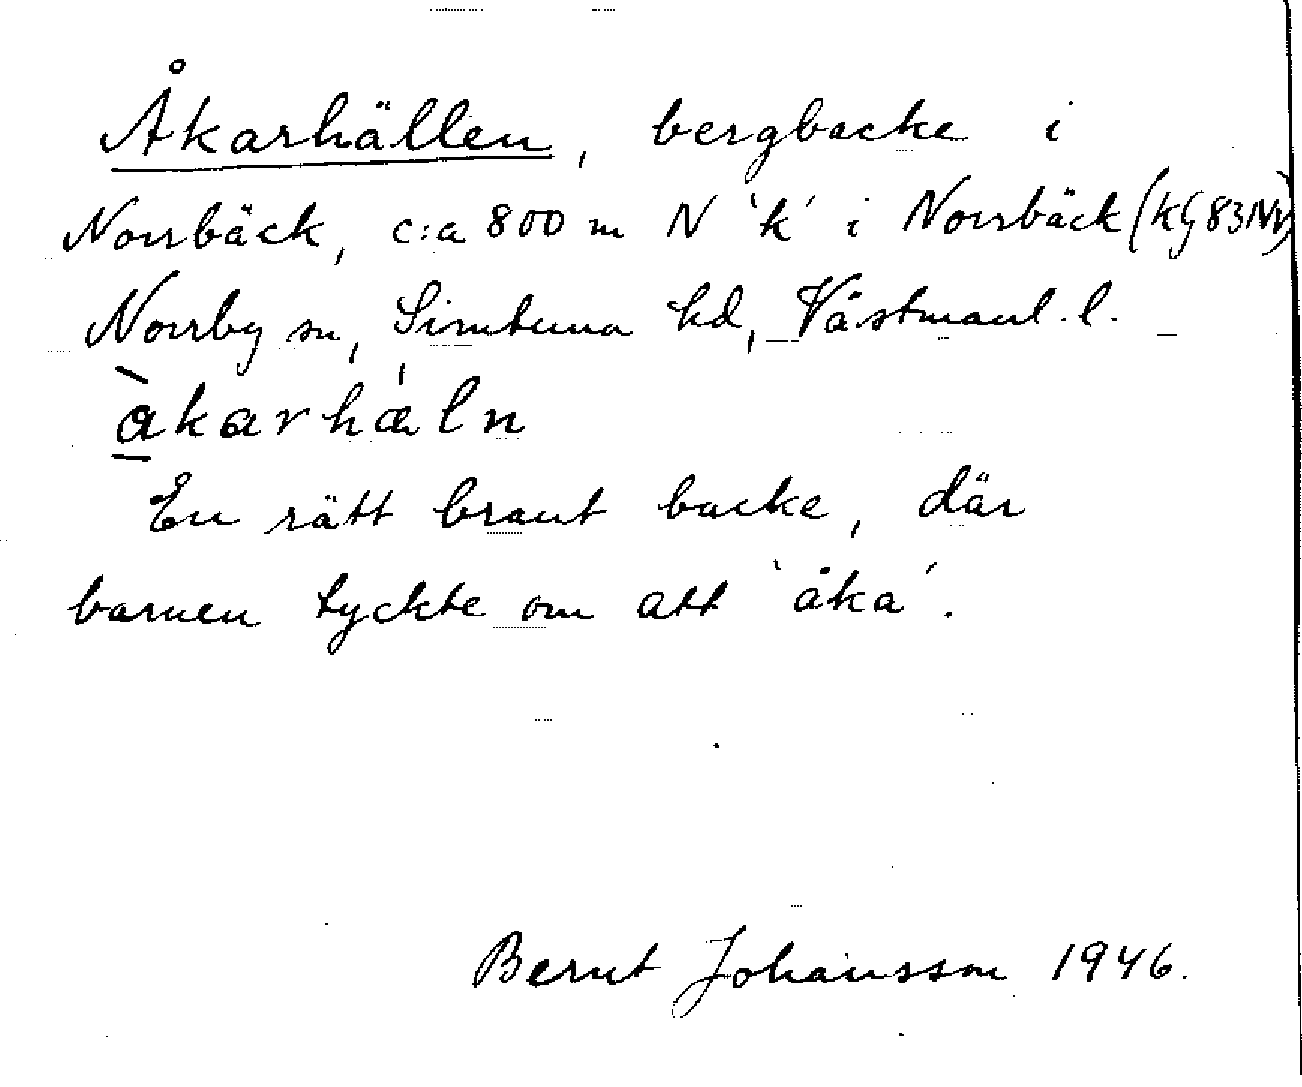 Åkarhällen, bergbacke i
Norrbäck, c:a 800 m N 'k' i Norrbäck (KG 83 NV)
Norrby sn, Simtuna hd, Västmanl. l.
åkarhæln
En rätt brant backe, där
barnen tyckte om att 'åka'.
Bernt Johansson 1946.